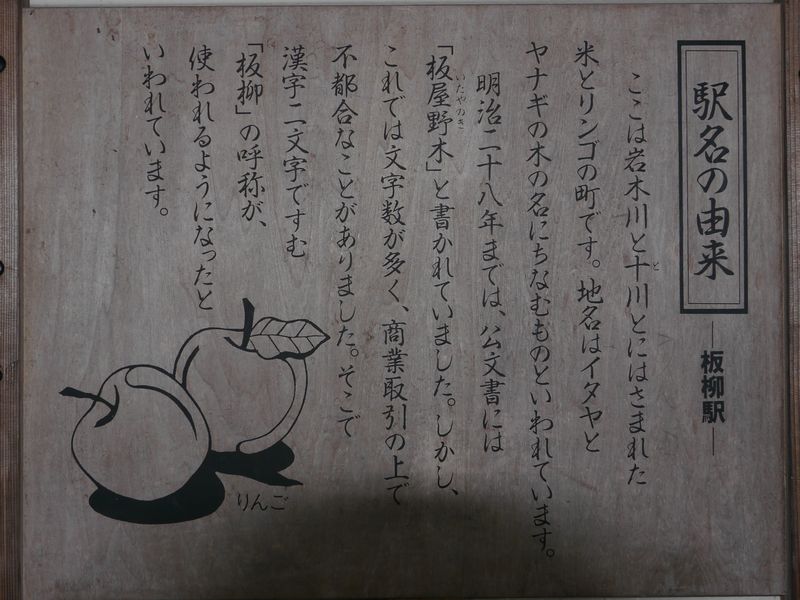 駅名の由来
―板柳駅―
ここは岩木川と十川とにはさまれた
米とリンゴの町です。地名はイタヤと
ヤナギの木の名にちなむものといわれています。
明治二十八年までは、公文書には
「板屋野木」と書かれていました。しかし、
これでは文字数が多く、商業取引の上で
不都合なことがありました。そこで
漢字二文字ですむ
「板柳」の呼称が、
使われるようになったと
いわれています。
と
いたやのき
りんご